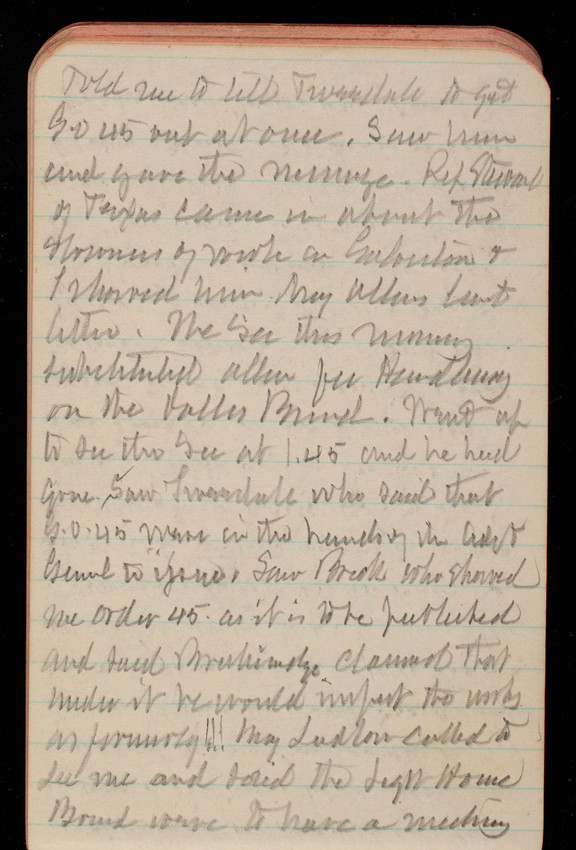 Told me to tell Truesdale to get
G.O 45 out at once. Saw him
and gave the message. Rep Stewart
of Texas came in about the
slowness of work in Galveston &
I showed him Maj Allens last
letter. The Sec this morning
substituted Allen for Handbury
on the Dalles Board. Went up
to see the Sec at 1.45 and he had
gone. Saw Truesdale who said that
G.O. 45 were in the hands of the Adjt
Genl to issue. Saw Brook who showed
me order 45. as it is to be published
and said Breckinridge claimed that
under it he would inspect the works
as formerly!!! Maj Ludlow called to
see me and said the Light House
Board were to have a meeting